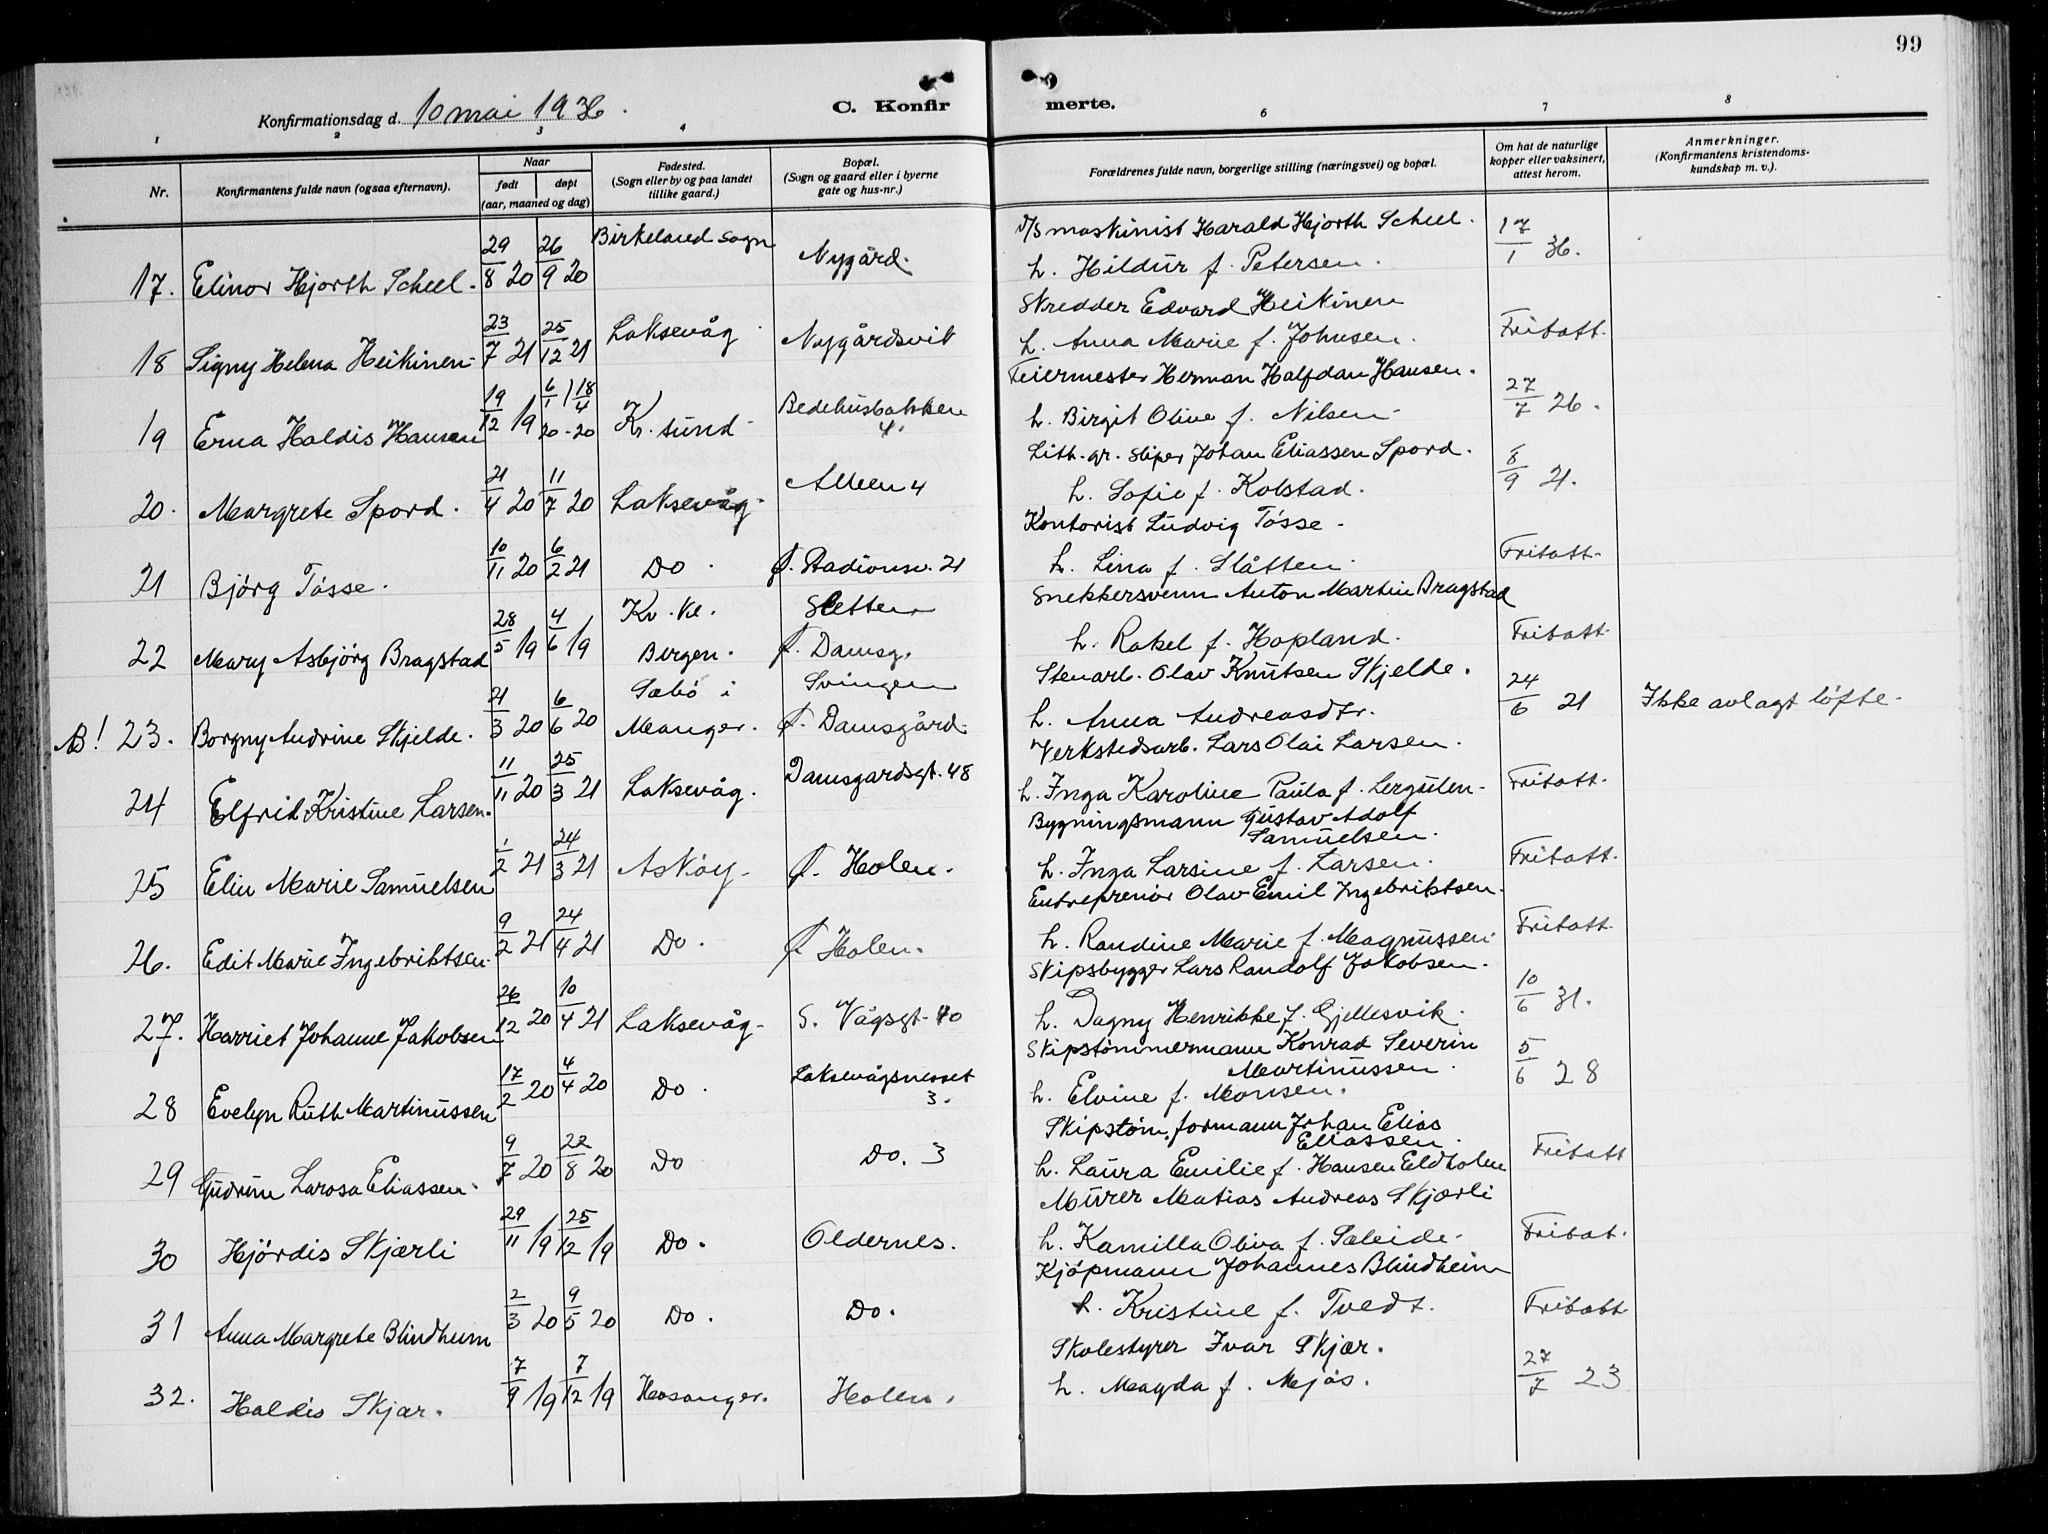 99
Konfirmationsdag d. 10 mai 1936.
C. Konfirmerte.
1 2 3 4 6 7 8
Nr.
Konfirmantens fulde navn (ogsaa efternavn).
Naar
født døpt
(aar, maaned og dag)
Fødested.
(Sogn eller by og paa landet
tillike gaard.)
Bopæl.
(Sogn og gaard eller i byerne
gate og hus-nr.)
Forældrenes fulde navn, borgerlige stilling (næringsvei) og bopæl.
Om hat de naturlige
kopper eller vaksinert,
attest herom.
Anmerkninger.
(Konfirmantens kristendoms-
kundskap m. v.).
17. Elinor Hjorth Scheel. 29/8 20 26/9 20 Birkeland sogn Nygård.
D/S maskinist Harald Hjorth Scheel.
h. Hildur f. Petersen. 17/1 36.
18 Signy Helena Heikinen 23/7 21 25/12 21 Laksevåg Nygårdsvik
Skredder Edvard Heikinen
h. Anna Marie f. Johnsen. Fritatt.
19 Erna Haldis Hansen 19/12 19 6/1 20 - 18/4 20 Kr. sund Bedehusbakken 4.
Feiermester Herman Halfdan Hansen.
h. Birgit Olive f. Nilsen 27/7 26.
20. Margrete Spord. 21/4 20 11/7 20 Laksevåg. Alleen 4
Lith. gr. sliper Johan Eliassen Spord.
h. Sofie f. Kolstad. 8/9 21.
21 Bjørg Tøsse. 10/11 20 6/2 21 Do. Ø. Stadionsv. 21
Kontorist Ludvig Tøsse.
h. Lina f. Slåtten. Fritatt.
22 Mary Asbjørg Bragstad 28/5 19 4/6 19 Kv. kl. Bergen. Sletten Ø. Damsg.
Snekkersvenn Anton Martin Bragstad
h. Rakel f. Hopland. Fritatt.
B! 23. Borgny Andrine Skjelde. 21/3 20 6/6 20 Sæbø i Manger. Svingen Ø. Damsgård.
Stenarb. Olav Knutsen Skjelde.
h. Anna Andreasdtr. 24/6 21 Ikke avlagt løfte.
24 Elfrid Kristine Larsen. 11/11 20 25/3 21 Laksevåg. Damsgardsgt. 48
Verkstedsarb. Lars Olai Larsen.
h. Inga Karoline Paula f. Lergulen. Fritatt.
25 Elin Marie Samuelsen 1/2 21 24/3 21 Askøy. Ø. Holen.
Bygningsmann Gustav Adolf
Samuelsen.
h. Inga Larsine f. Larsen. Fritatt.
26. Edit Marie Ingebriktsen. 9/2 21 24/4 21 Do. Ø Holen.
Entreprenør Olav Emil Ingebriktsen.
h. Randine Marie f. Magnussen. Fritatt.
27. Harriet Johanne Jakobsen 26/12 20 10/4 21 Laksevåg. S. Vågsgt. 40
Skipsbygger Lars Randolf Jakobsen.
h. Dagny Henrikke f. Gjellesvik. 10/6 31.
28 Evelyn Ruth Martinussen 17/2 20 4/4 20 Do. Laksevågsnesset 3.
Skipstømmermann Konrad Severin
Martinussen.
h. Elvine f. Monsen. 5/6 28
29 Gudrun Larosa Eliassen. 9/7 20 22/8 20 Do Do. 3
Skipstøm. formann Johan Elias
Eliassen.
h. Laura Emilie f. Hansen Eldholm Fritatt
30 Hjørdis Skjærli 29/11 19 25/12 19 Do. Oldernes.
Murer Matias Andreas Skjærli
h. Kamilla Oliva f. Sæleide. Fritat.
31 Anna Margrete Blindheim 2/3 20 9/5 20 Do. Do.
Kjøpmann Johannes Blindheim
h. Kristine f. Tvedt. Fritatt
32. Haldis Skjær. 7/9 19 7/12 19 Hosanger. Holen.
Skolestyrer Ivar Skjær.
h. Magda f. Mjøs. 27/7 23